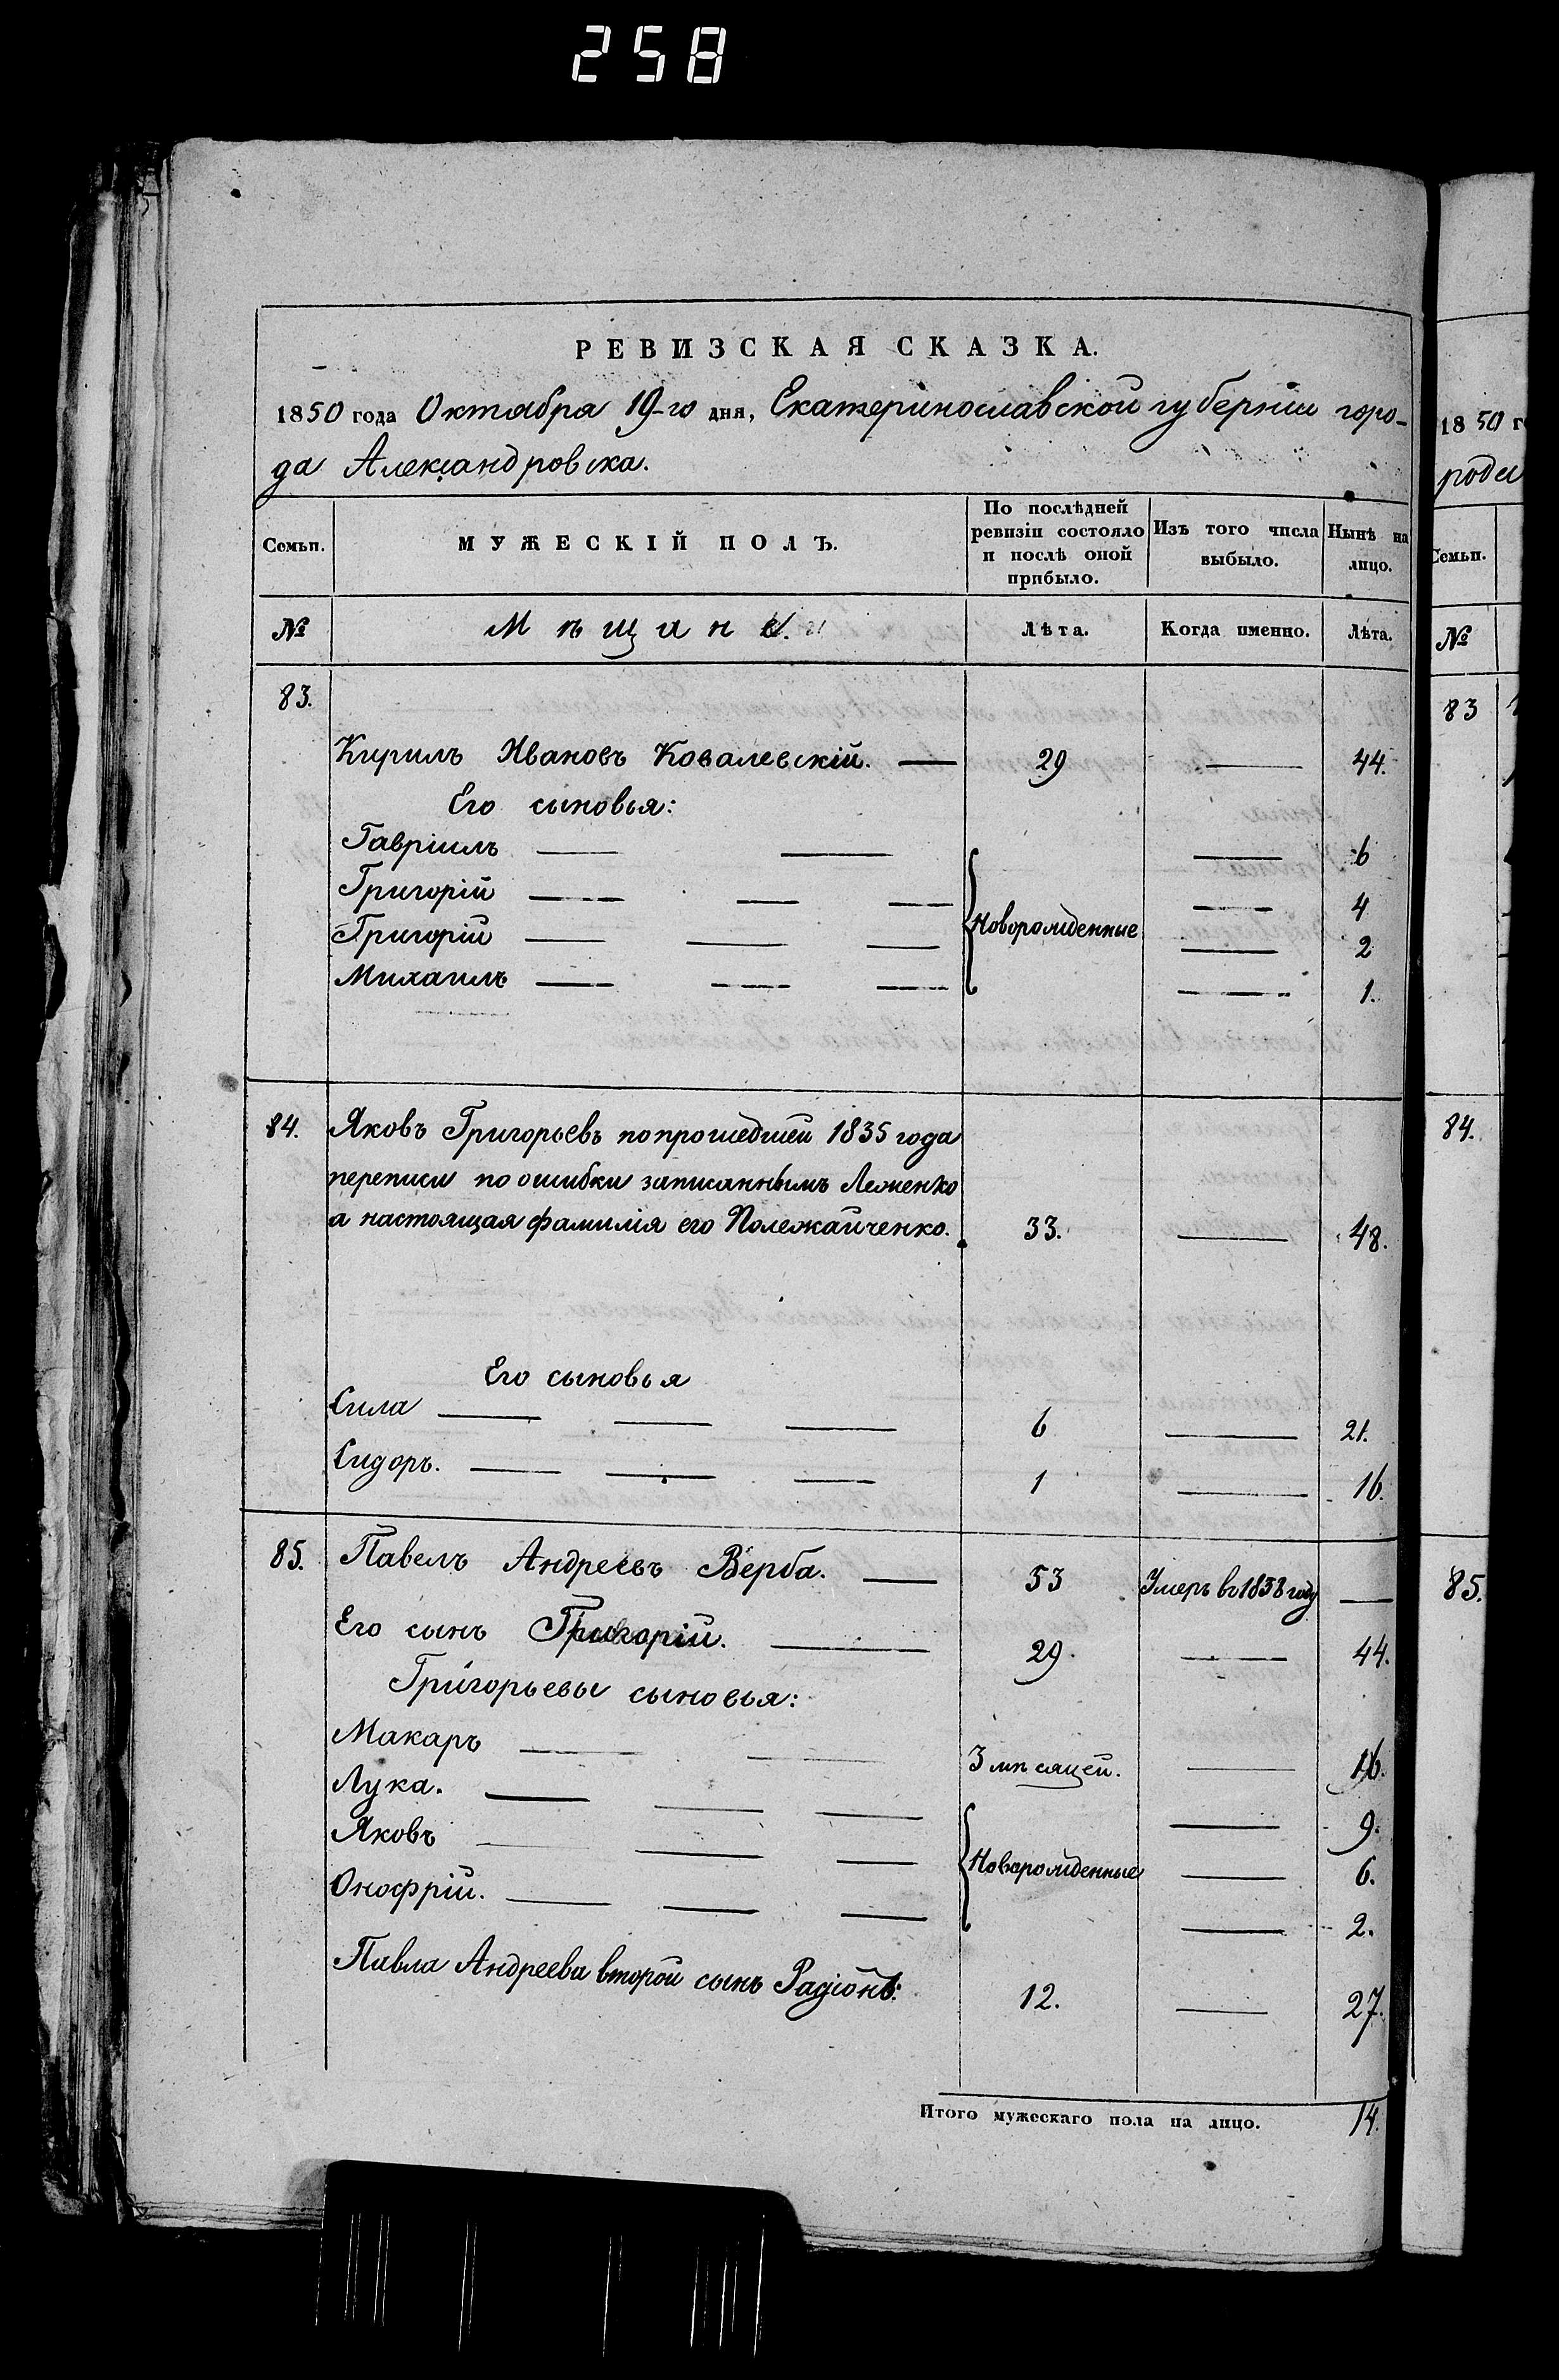 258
РЕВИЗСКАЯ СКАЗКА.
1850 года Октября 19-го дня, Екатеринославской губерніи горо-
да Александровска.
Семьи. МУЖЕСКІЙ ПОЛЪ. По послѣдней ревизіи состояло и послѣ оной прибыло. Изъ того числа выбыло. Нынѣ на лицо.
№ Мѣщане. Лѣта. Когда именно. Лѣта.
83.
Кирилъ Ивановъ Ковалевскій. 29 44.
Его сыновья:
Гавріилъ 6
Григорій 4
Новорожденные
Григорій 2
Михаилъ 1.
84. Яковъ Григорьевъ по прошедшей 1835 года
переписи по ошибки записаннымъ
а настоящая фамилія его Полежайченко. 33. 48.
Его сыновья
Сила 6 21.
Сидоръ. 1 16.
85. Павелъ Андреевъ Верба. 53 Умеръ въ 1838 году
Его сынъ Григорій. 29. 44.
Григорьевы сыновья:
Макаръ 3 мѣсяцей. 16.
Лука. 9.
Яковъ Новорожденные 6.
Онофрій. 2.
Павла Андреева второй сынъ Радіонъ. 12. 27.
Итого мужескаго пола на лицо. 14.
1850 г
рода
Семьи.
№
83
84.
85.